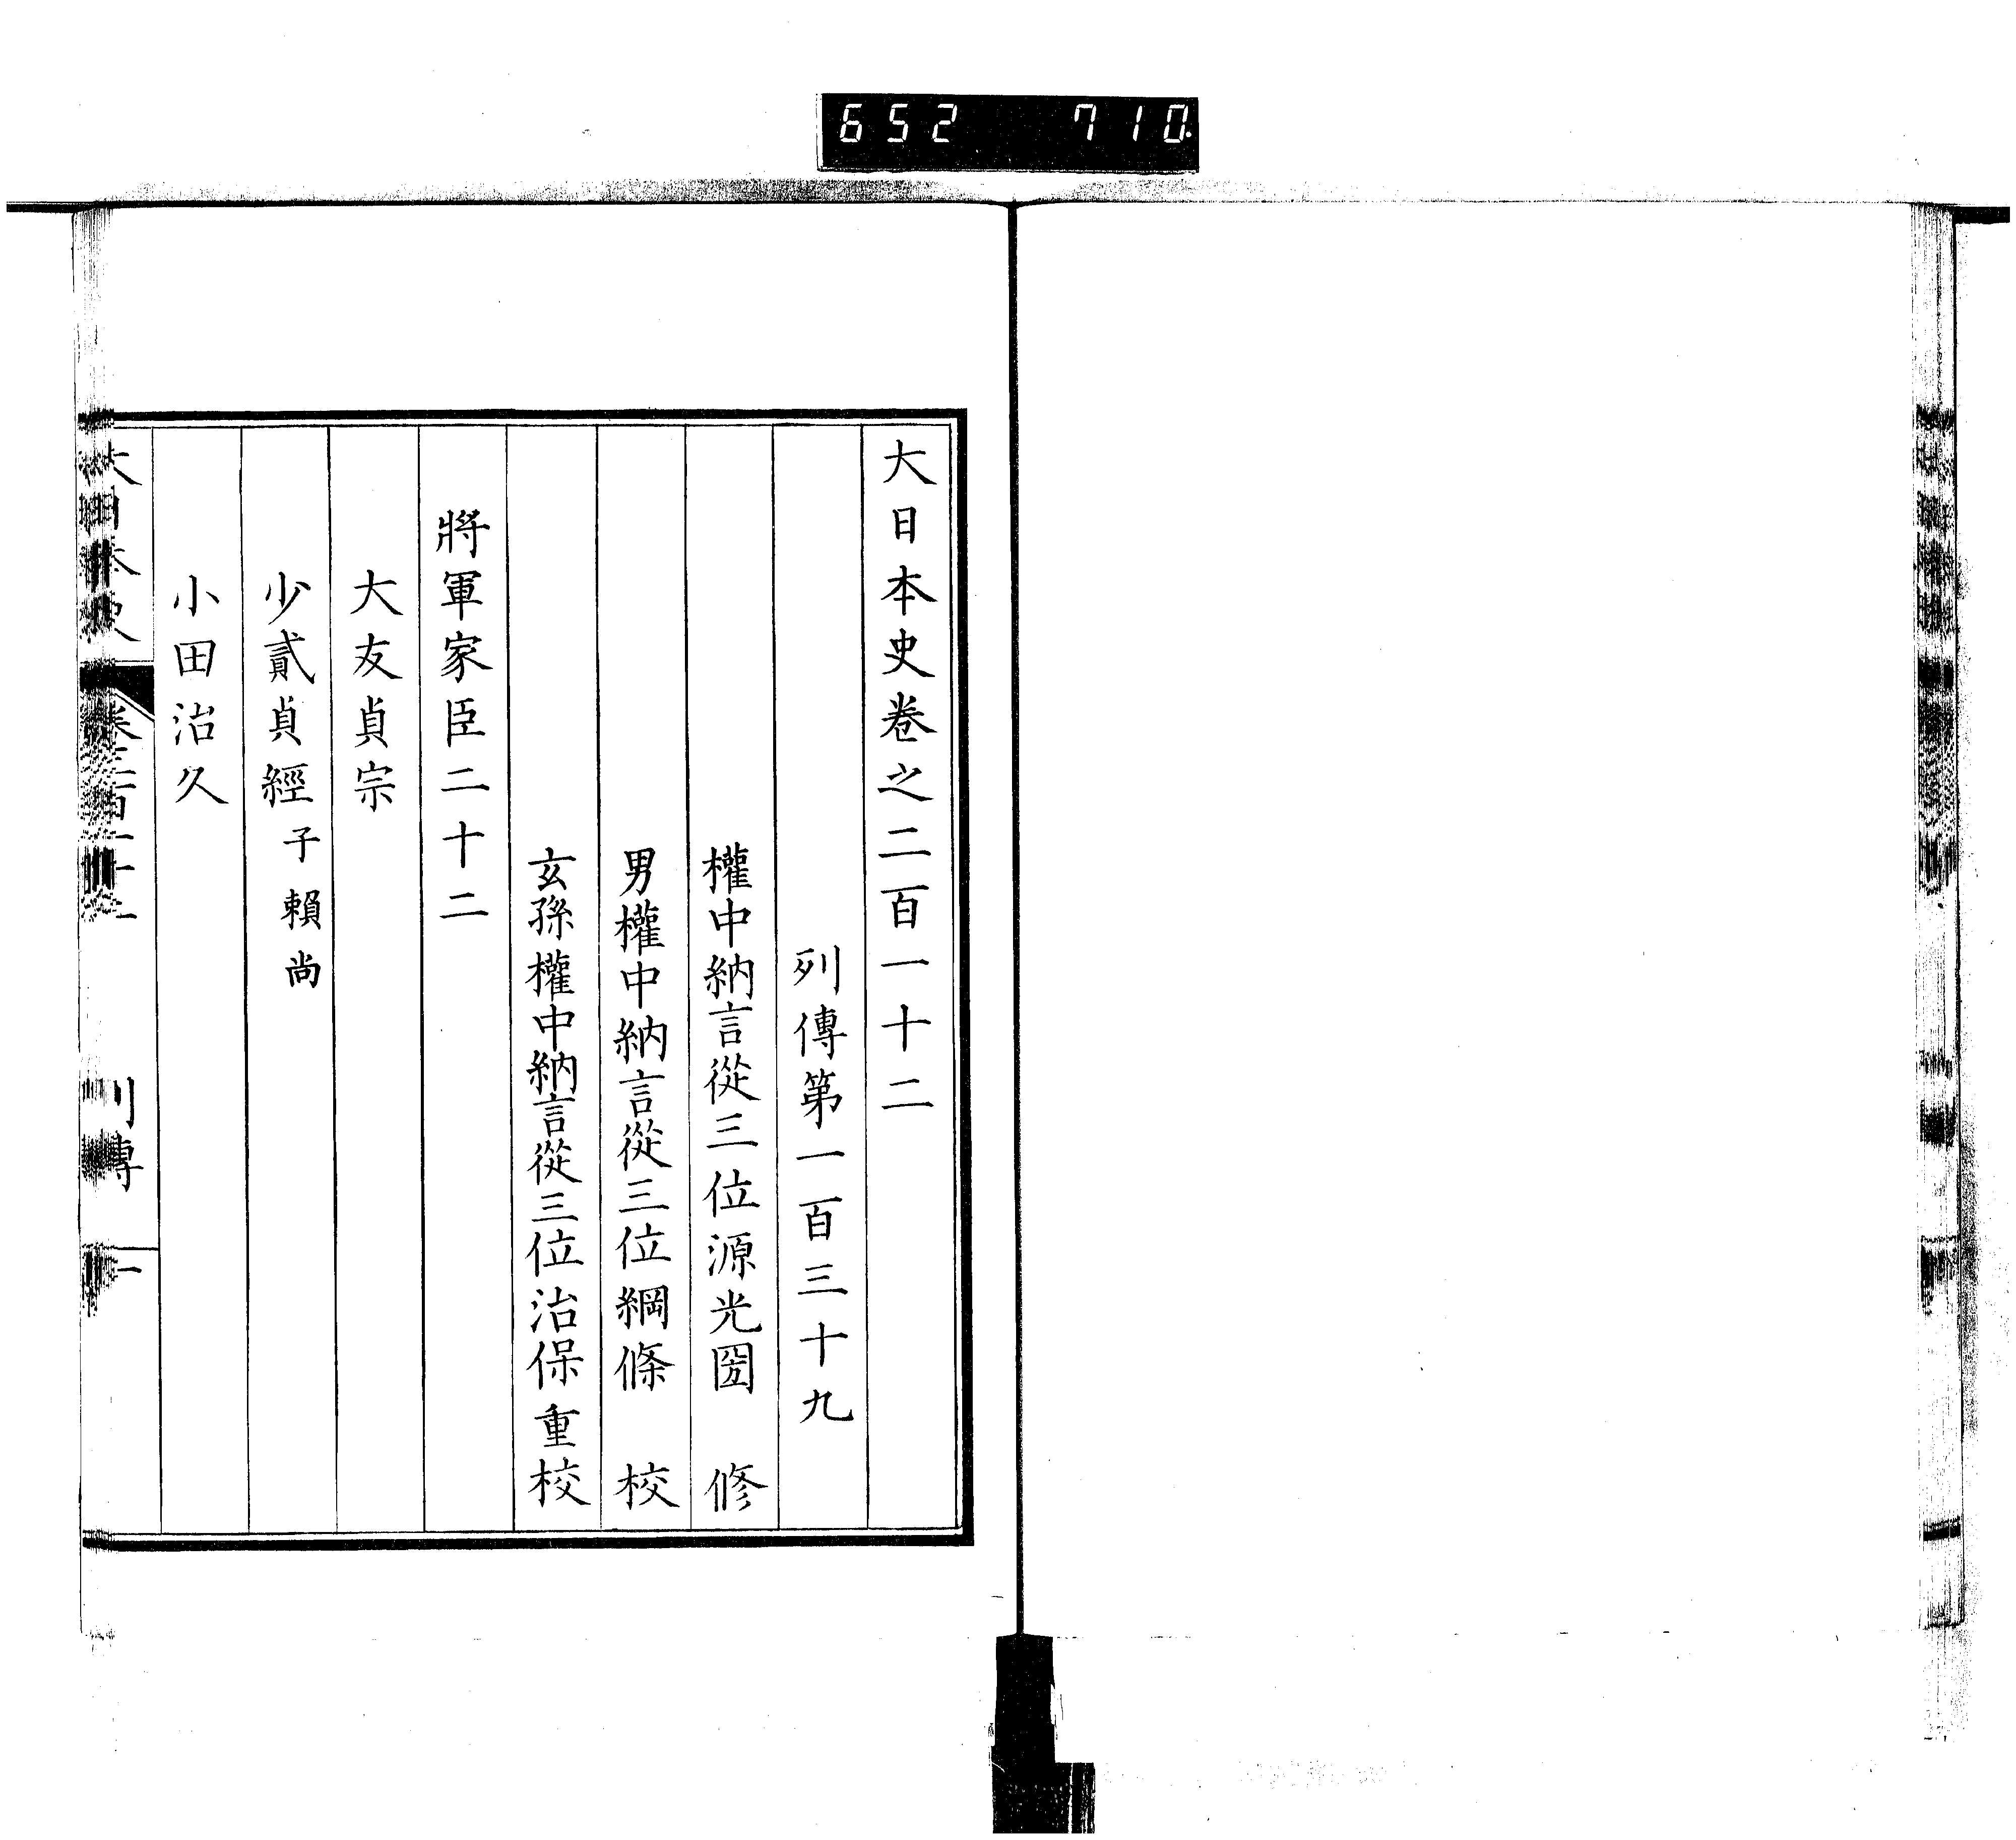 652 710
大日本史卷之二百一十二
列傳第一百三十九
權中納言從三位源光圀 修
男權中納言從三位綱條 校
玄孫權中納言從三位治保重校
將軍家臣二十二
大友貞宗
少貳貞經 子賴尚
小田治久